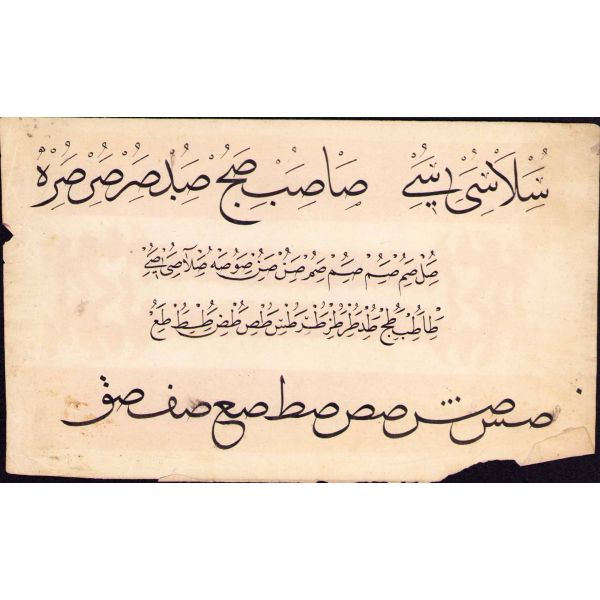 سُلَا سُى سُے صَا صَبِ صُحْ صُد صُر صُرْ صُرْهْ
صُل صُم صُم صُم صُمْ صُنْ صُنْ صُو صُه صُلَا صُى صُے
طَا طُبْ طُحْ طُد طُرْ طُرْ طُر طُسْ طُصْ طُضْ طُطْ طُعْ
صس صش صص صط صع صف صق